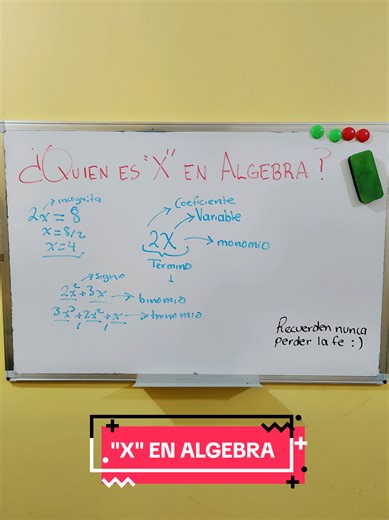 ¿Quien es "X" en Algebra?
incognita
2x = 8
x = 8/2
x = 4
Coeficiente
Variable
2x
monomio
Termino
signo
2x² + 3x
binomio
3x³ + 2x² + x
trinomio
Recuerden nunca
perder la fe :)
"X" EN ALGEBRA